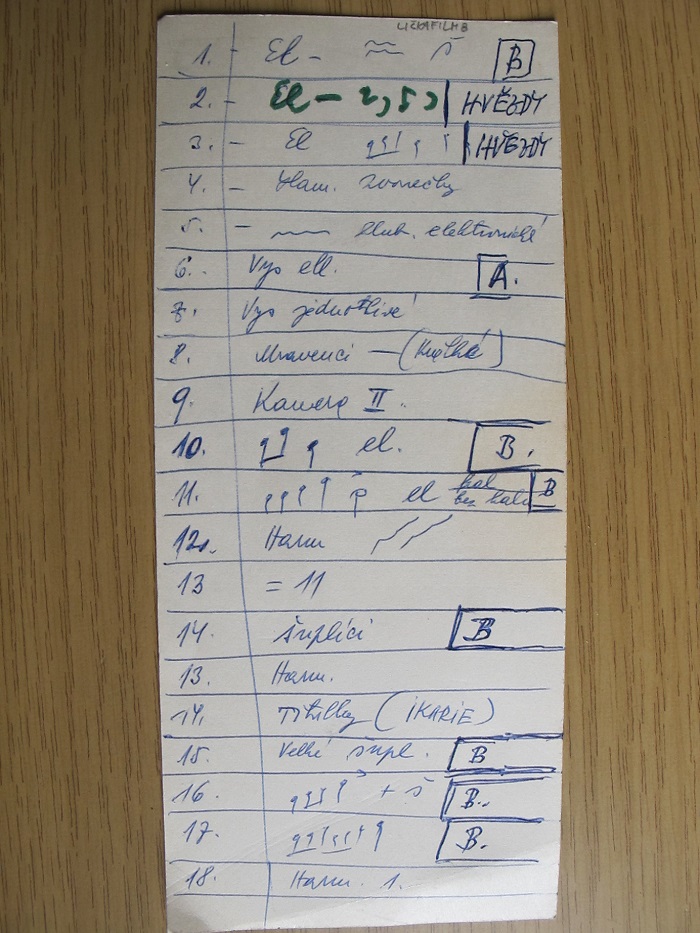 1. - El - š B
2. - El - 2, 5, HVĚZDY
3. - El HVĚZDY
4. - Ham. zvonečky
5. - hlub. elektronické
6. Vys ell. A.
7. Vys jednotlivé
8. Mravenci - (Krátké)
9. Kamera II.
10. el. B.
11. el hal bez halu B
12. Harm
13 = 11
14. šuplíci B
13. Harm.
14. Titulky (IKARIE)
15. Velké šupl. B
16 + š B.
17. B.
18. Harm. 1.